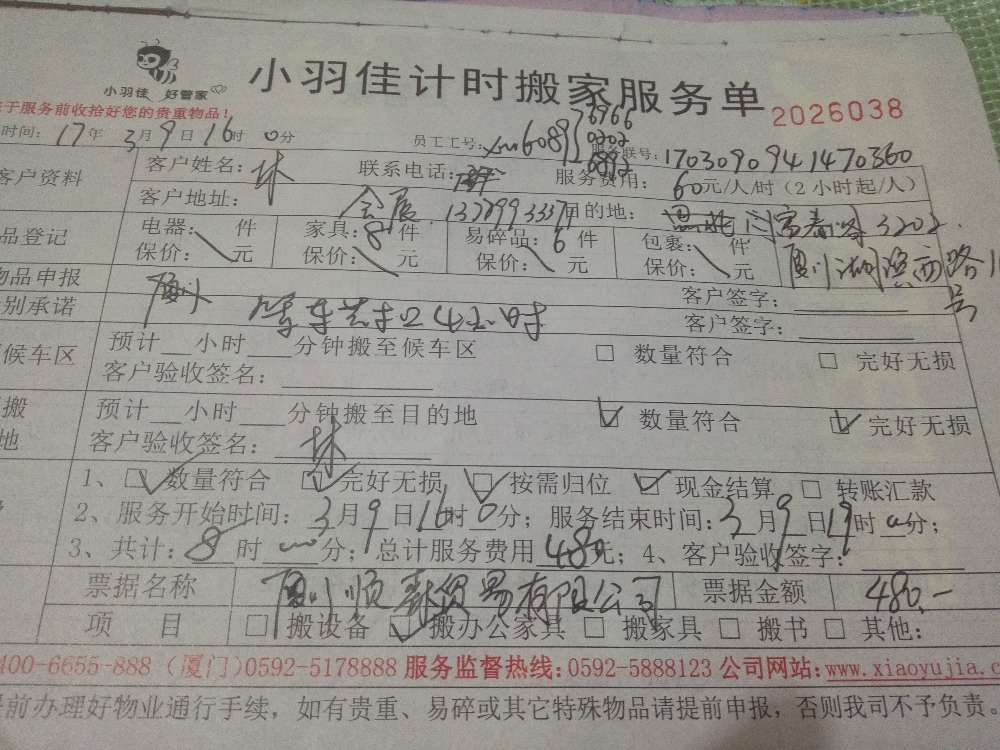 小羽佳 好管家
小羽佳计时搬家服务单 2026038
于服务前收拾好您的贵重物品!
时间: 17年 3月 9日 16时 0分 员工工号: 服务联号: 1703090941470360
客户资料 客户姓名: 林 联系电话: 服务费用: 60元/人/时 (2小时起/人)
客户地址: 会展 目的地: 3202
品登记 电器: 件 家具: 8件 易碎品: 6件 包裹: 件
保价: 元 保价: 元 保价: 元 保价: 元 厦门湖滨西路
物品申报 客户签字:
别承诺 小时 客户签字: 号
候车区 预计__小时___分钟搬至候车区 □ 数量符合 □ 完好无损
客户验收签名:
搬 预计__小时___分钟搬至目的地 ☑ 数量符合 ☑ 完好无损
地 客户验收签名: 林
1、☑数量符合 ☑完好无损 ☑按需归位 ☑现金结算 □ 转账汇款
2、服务开始时间: 3月9日16时0分; 服务结束时间: 3月9日19时 分;
3、共计: 8时 分; 总计服务费用 480元; 4、客户验收签字:
票据名称 厦门顺 贸易有限公司 票据金额 480.-
项 目 □ 搬设备 ☑ 搬办公家具 □ 搬家具 □ 搬书 □ 其他:
400-6655-888 (厦门)0592-5178888 服务监督热线: 0592-5888123 公司网站: www.xiaoyujia.c
前办理好物业通行手续, 如有贵重、易碎或其它特殊物品请提前申报, 否则我司不予负责。